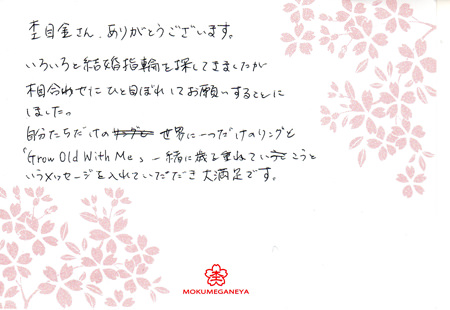 杢目金さん、ありがとうございます。
いろいろと結婚指輪を探してきましたが
木目合わせにひと目ぼれしてお願いすることに
しました。
自分たちだけの 世界に一つだけのリングと
「Grow Old With Me」 一緒に歳を重ねていこうと
いうメッセージを入れていただき大満足です。
MOKUMEGANEYA